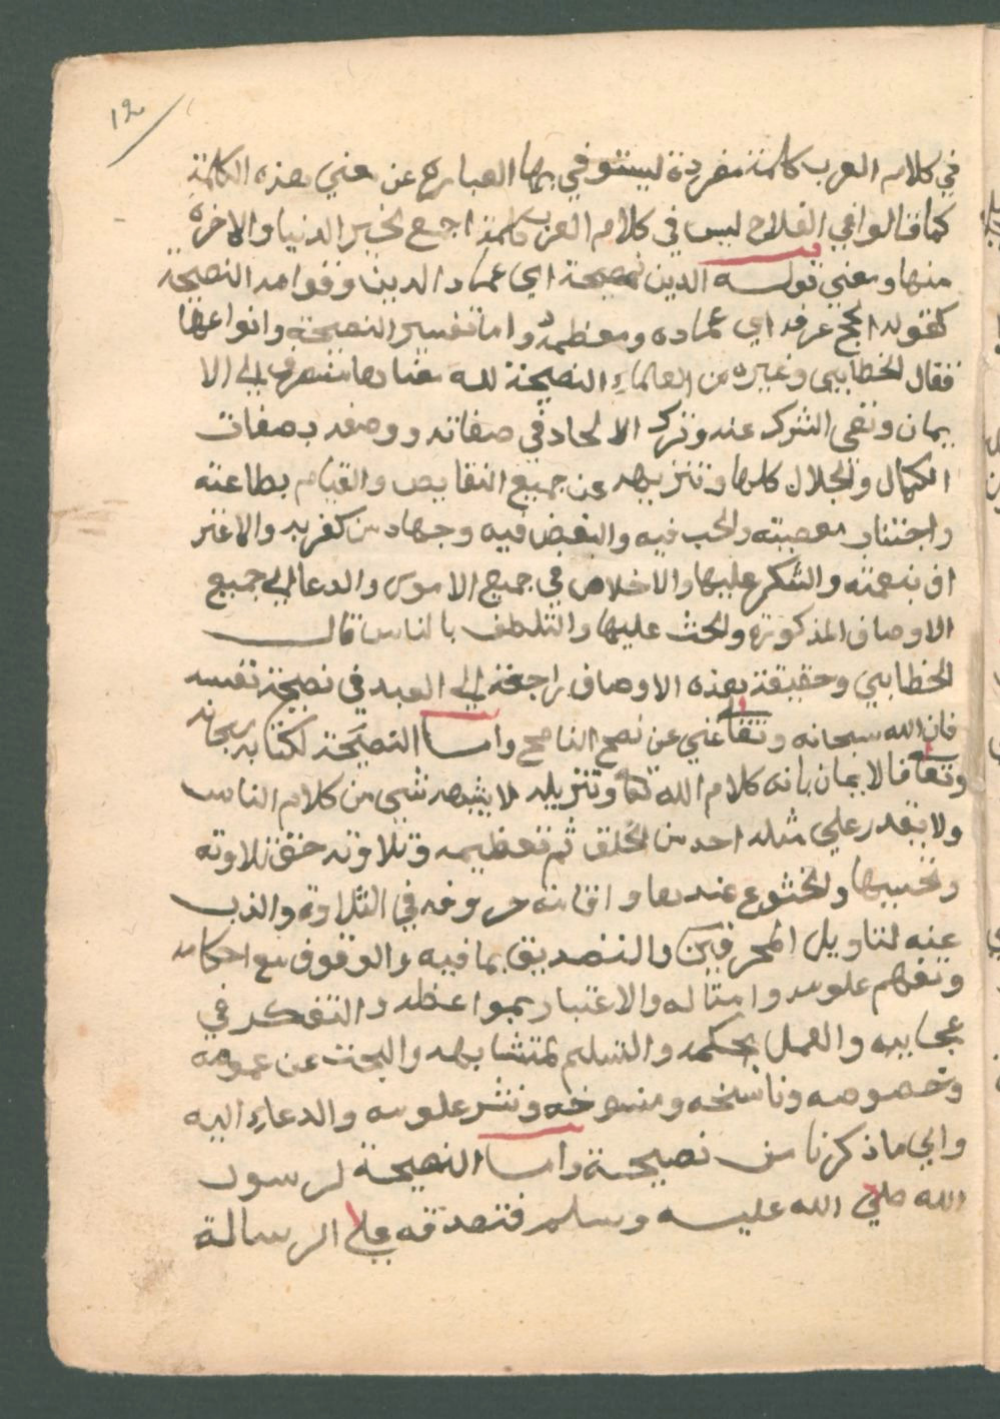 ١٢
في كلام العرب كلمة مفردة ليستوفي بها العبارة عن معني هذه الكلمة
كما قالوا في الفلاح ليس في كلام العرب كلمة اجمع لخير الدنيا والاخرة
منها ومعني قوله الدين نصيحة اي عماد الدين وقوامه النصيحة
كقوله الحج عرفه اي عماده ومعظمه واما تفسير النصيحة وانواعها
فقال الخطابي وغيره من العلماء النصيحة لله معناها منصرف الي الا
يمان ونفي الشرك عنه وترك الالحاد في صفاته ووصفه بصفات
الكمال والجلال كلها وتنزيهه عن جميع النقايص والقيام بطاعته
واجتناب معصيته والحب فيه والبغض فيه وجهاد من كفر به والاعتر
اف بنعمته والشكر عليها والاخلاص في جميع الامور والدعا الي جميع
الاوصاف المذكورة والحث عليها والتلطف بالناس قال
الخطابي وحقيقة بهذه الاوصاف راجعة الي العبد في نصيحة نفسه
فان الله سبحانه وتعا غني عن نصح الناصح واما النصيحة لكتابه سبحانه
وتعا فالايمان بانه كلام الله تعا وتنزيله لا يشبهه شي من كلام الناس
ولا يقدر علي مثله احد من الخلق ثم تعظيمه وتلاوته حق تلاوته
وتحسينها والخشوع عندها واقامة حروفه في التلاوة والذب
عنه لتاويل المحرفين والتصديق بما فيه والوقوف مع احكامه
وتفهم علومه وامثاله والاعتبار بمواعظه والتفكر في
عجايبه والعمل بحكمه والتسليم لمتشابهه والبحث عن عمومه
وخصوصه وناسخه ومنسوخه ونشر علومه والدعاء اليه
والي ما ذكرنا من نصيحة واما النصيحة لرسول
الله صلي الله عليه وسلم فتصدقه علي الرسالة